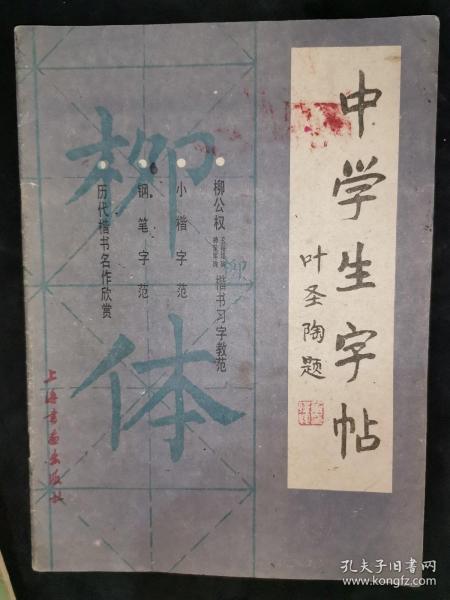 中学生字帖
叶圣陶题
柳公权
楷书习字教范
小楷字范
钢笔字范
历代楷书名作欣赏
柳体
上海书画出版社
孔夫子旧书网
www.kongfz.com